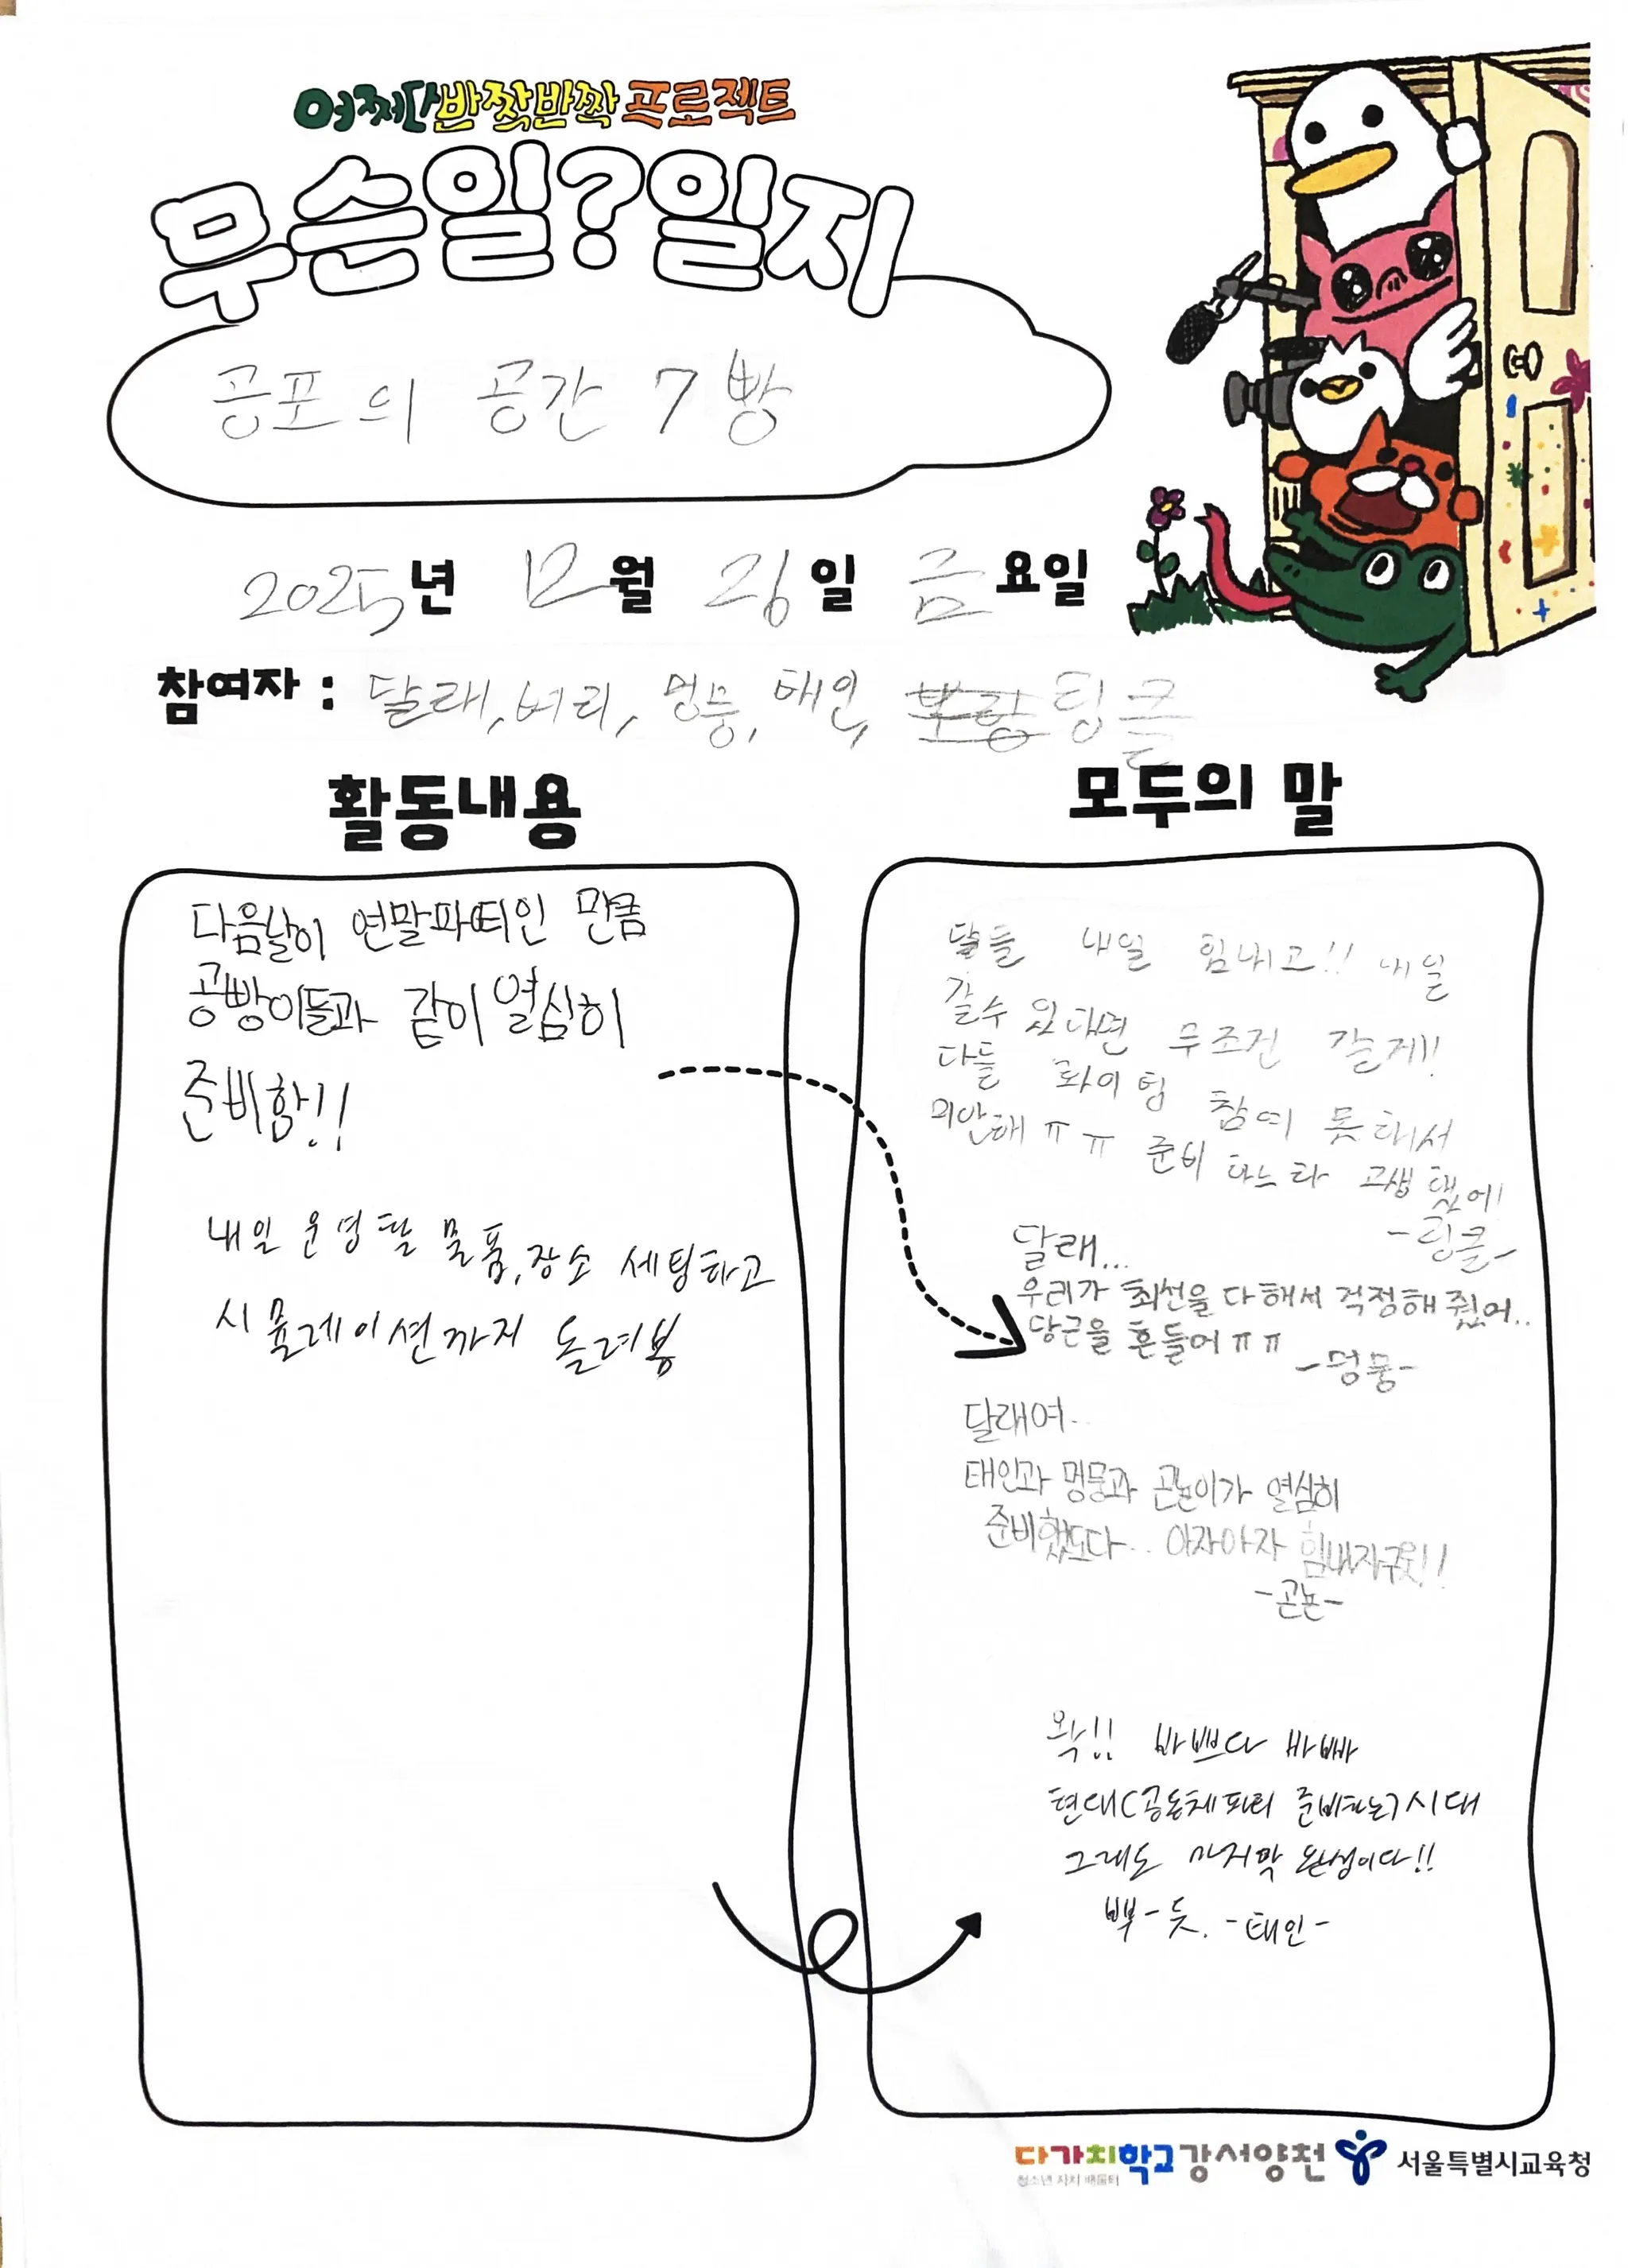 어쩌다반짝반짝 프로젝트
무슨일?일지
공포의 공간 7빵
2025년 12월 26일 금요일
참여자 : 달래, 버리, 멍뭉, 태인, 팅클
활동내용
다음날이 연말파티인 만큼
공빵이들과 같이 열심히
준비함!!
내일 운영할 물품, 장소 세팅하고
시뮬레이션까지 돌려봄
모두의 말
달들 내일 힘내고!! 내일
갈수 있다면 무조건 갈게!!
다들 화이팅 참여 못해서
미안해 ㅠㅠ 준비 하느라 고생했어!
-팅클-
달래...
우리가 최선을 다해서 걱정해줬어..
당근을 흔들어 ㅠㅠ
-멍뭉-
달래여..
태인과 멍뭉과 곤뇽이가 열심히
준비했도다.. 아자아자 힘내자구웃!!
-곤뇽-
왁!! 바쁘다 바빠
현대(공동체파티 준비하는)시대
그래도 마지막 완성이다!!
뿌-듯. -태인-
다가치학교 강서양천
청소년 자치 배움터
서울특별시교육청